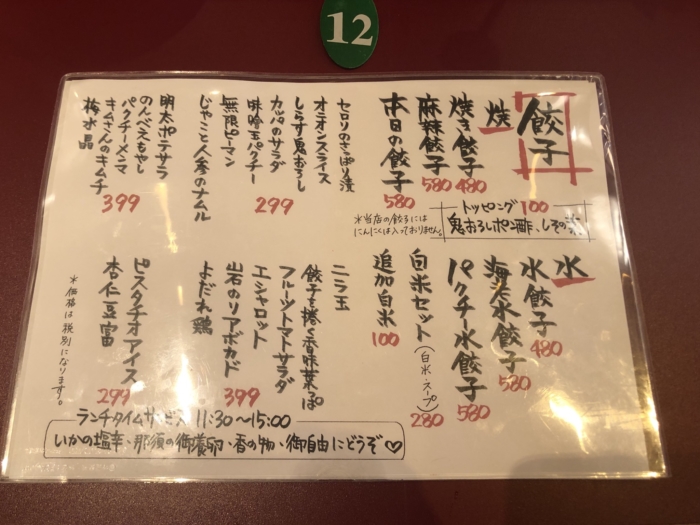 12
餃子
焼
焼き餃子 480
麻辣餃子 580
本日の餃子 580
トッピング 100
鬼おろしポン酢、しその葉
※当店の餃子には
にんにくは入っておりません。
セロリのさっぱり漬
オニオンスライス
しらす鬼おろし
カッパのサラダ
味噌玉パクチー
無限ピーマン
じゃこと人参のナムル
299
明太ポテサラ
のんべえもやし
パクチーメンマ
キムさんのキムチ
梅水晶
399
水
水餃子 480
海老水餃子 580
パクチー水餃子 580
白米セット(白米・スープ) 280
追加白米 100
ニラ玉
餃子を捲く香味葉っぱ
フルーツトマトサラダ
エシャロット
岩石のリアボカド
よだれ鶏
399
ピスタチオアイス
杏仁豆富
299
※価格は税別になります。
ランチタイムサービス 11:30〜15:00
いかの塩辛、那須の御養卵、香の物、御自由にどうぞ♡